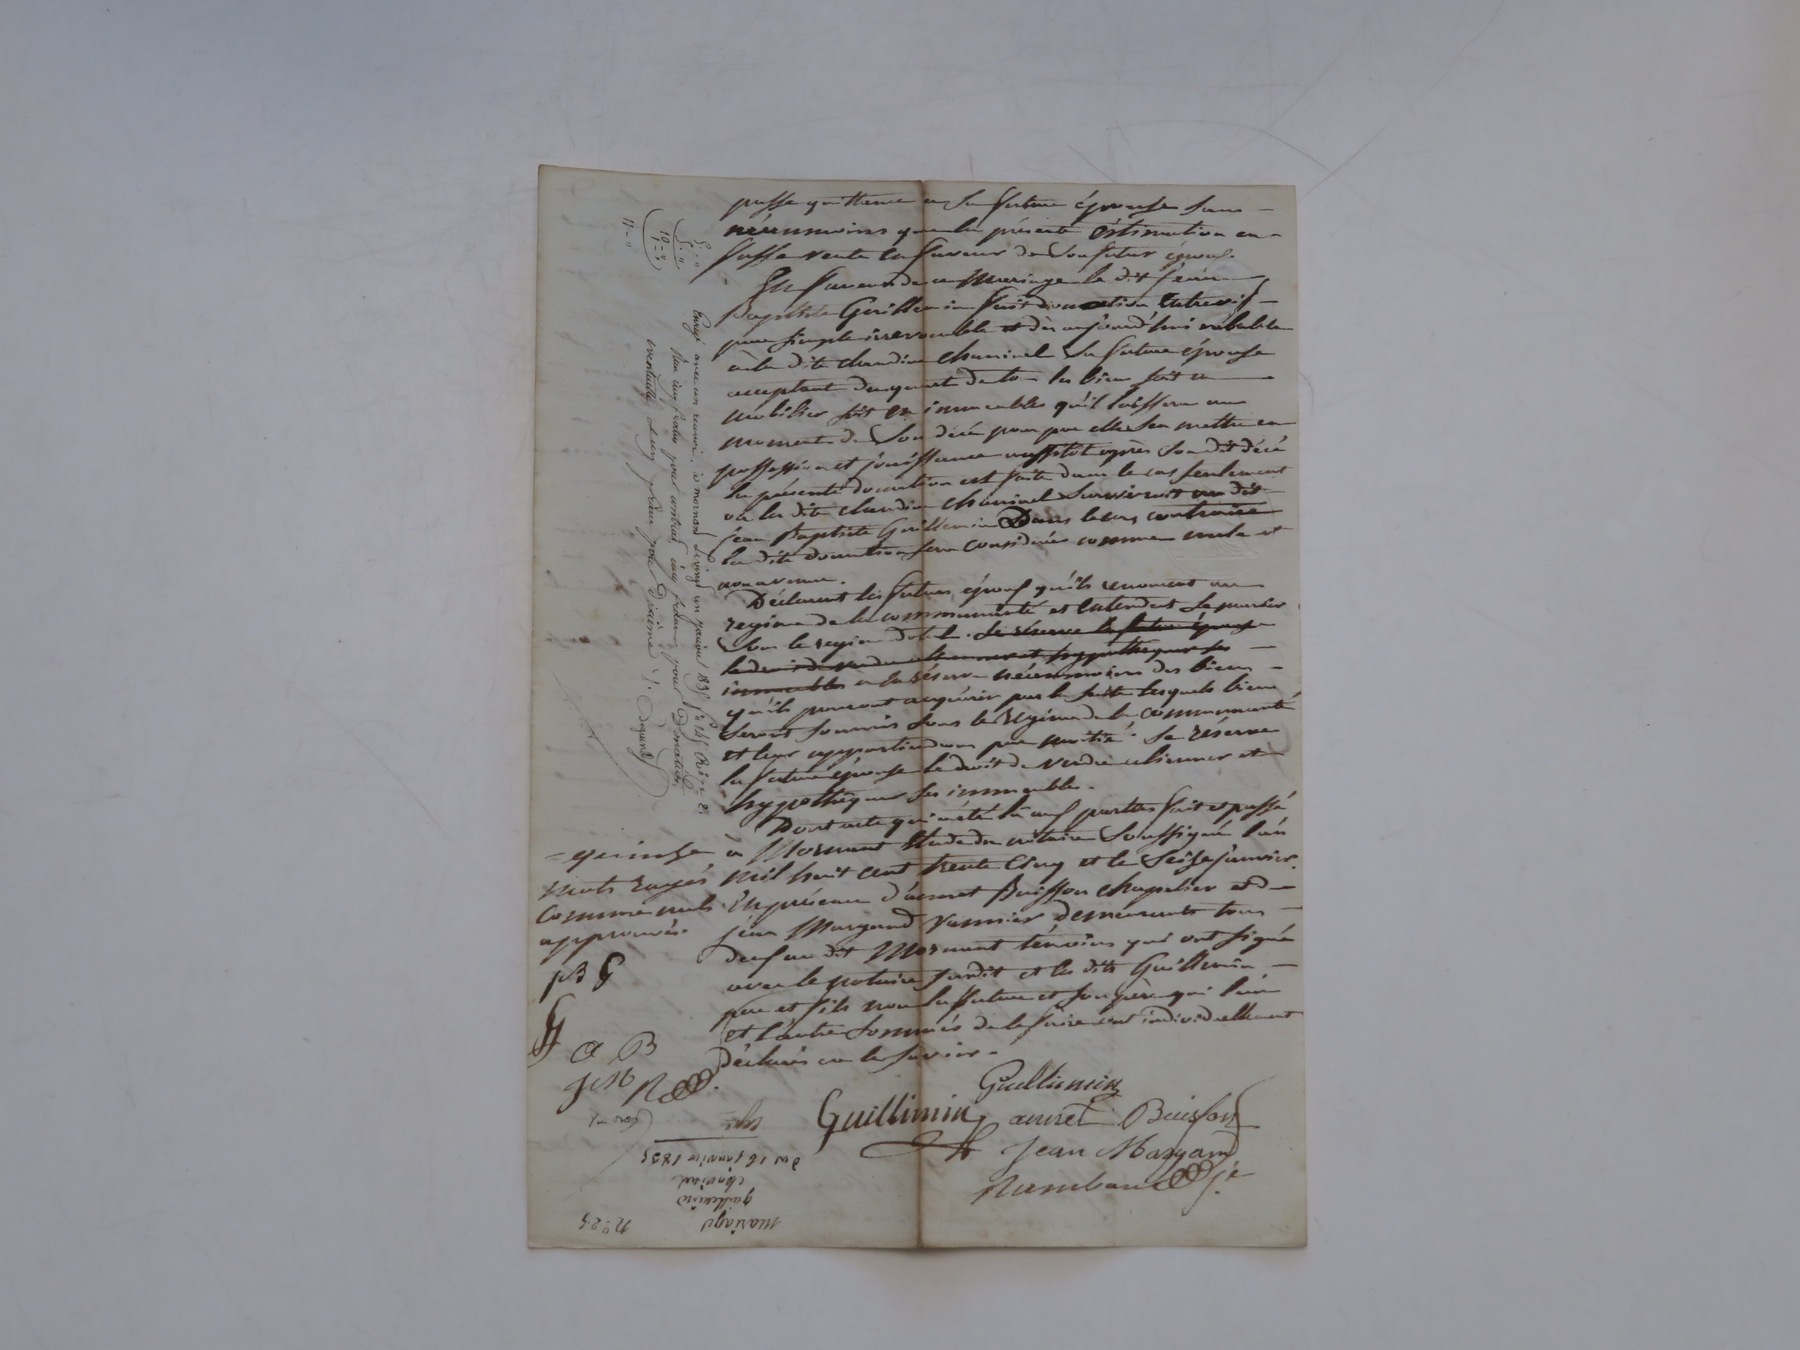 passe quittance a sa future épouse sans
néanmoins que la présente éstimation en
fasse vente en faveur de son futur époux.
En faveur de ce Mariage le dit jean
Baptiste Guillemin fait donation Entrevifs
pure simple irrevocable et dès aujourd'hui valable
à la dite claudine chaninel sa future épouse
acceptant du quart de tous les bien soit en
mobilier soit en immeubles qu'il laissera au
moment de son décé pour par elle s'en mettre en
possession et jouissance aussitôt après son dit décé
la présente donation est faite dans le cas seulement
où la dite claudine chaninel survivroit au dit
jean Baptiste Guillemin Dans le cas contraire
la dite donation sera considérée comme nule et
non avenue.
Déclarent les futurs époux qu'ils renoncent au
regime de la communauté et entendent se marier
sous le regime dotal. Se réserve la future épouse
le droit de vendre alienner et hypothequer ses
immeubles a la réserve néanmoins des biens
qu'ils pourront acquérir par la suite lesquels biens
seront soumis sous le régime de la communauté
et leur appartiendrons par moitié. Se réserve
la future épouse le droit de vendre aliener et
hypothèquer ses immeubles.
Dont acte qui a été lû aux parties fait et passé
a Mornant Etude du notaire soussigné l'an
mil huit cent trente cinq et le seize janvier
En présence d'aimet Buisson chapelier et de
jean Margand vannier demeurants tous
deux au dit Mornant témoins qui ont signé
avec le notaire susdit et les dits Guillemin
père et fils non la future et son père qui l'un
et l'autre sommés de le faire ont individuellement
déclarés ne le savoir.
quinze
mots rayés
comme nuls
approuvés
JBG
G
a B
J M
Guillemin
Guillimin
aimet Buisson
Jean Margand
Enregé avec un renvoi, à mornant le vingt un janvier 1835
Reçu cinq francs pour contrat cinq francs pour Donation
eventuelle & un franc pour Décime
10 -
11 -
N° 25
mariage
guillemin
chaninel
du 16 janvier 1835